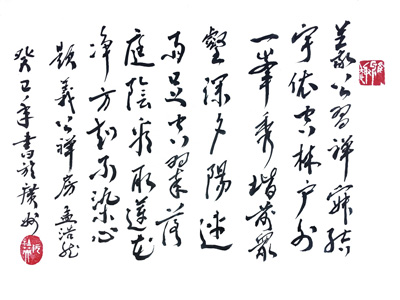 義公習禅寂結
宇依空林户外
一峯秀階前眾
壑深夕陽連
雨足空翠落
庭陰看取蓮花
净方知不染心
题義公禅房 孟浩然
癸巳年書於廣州